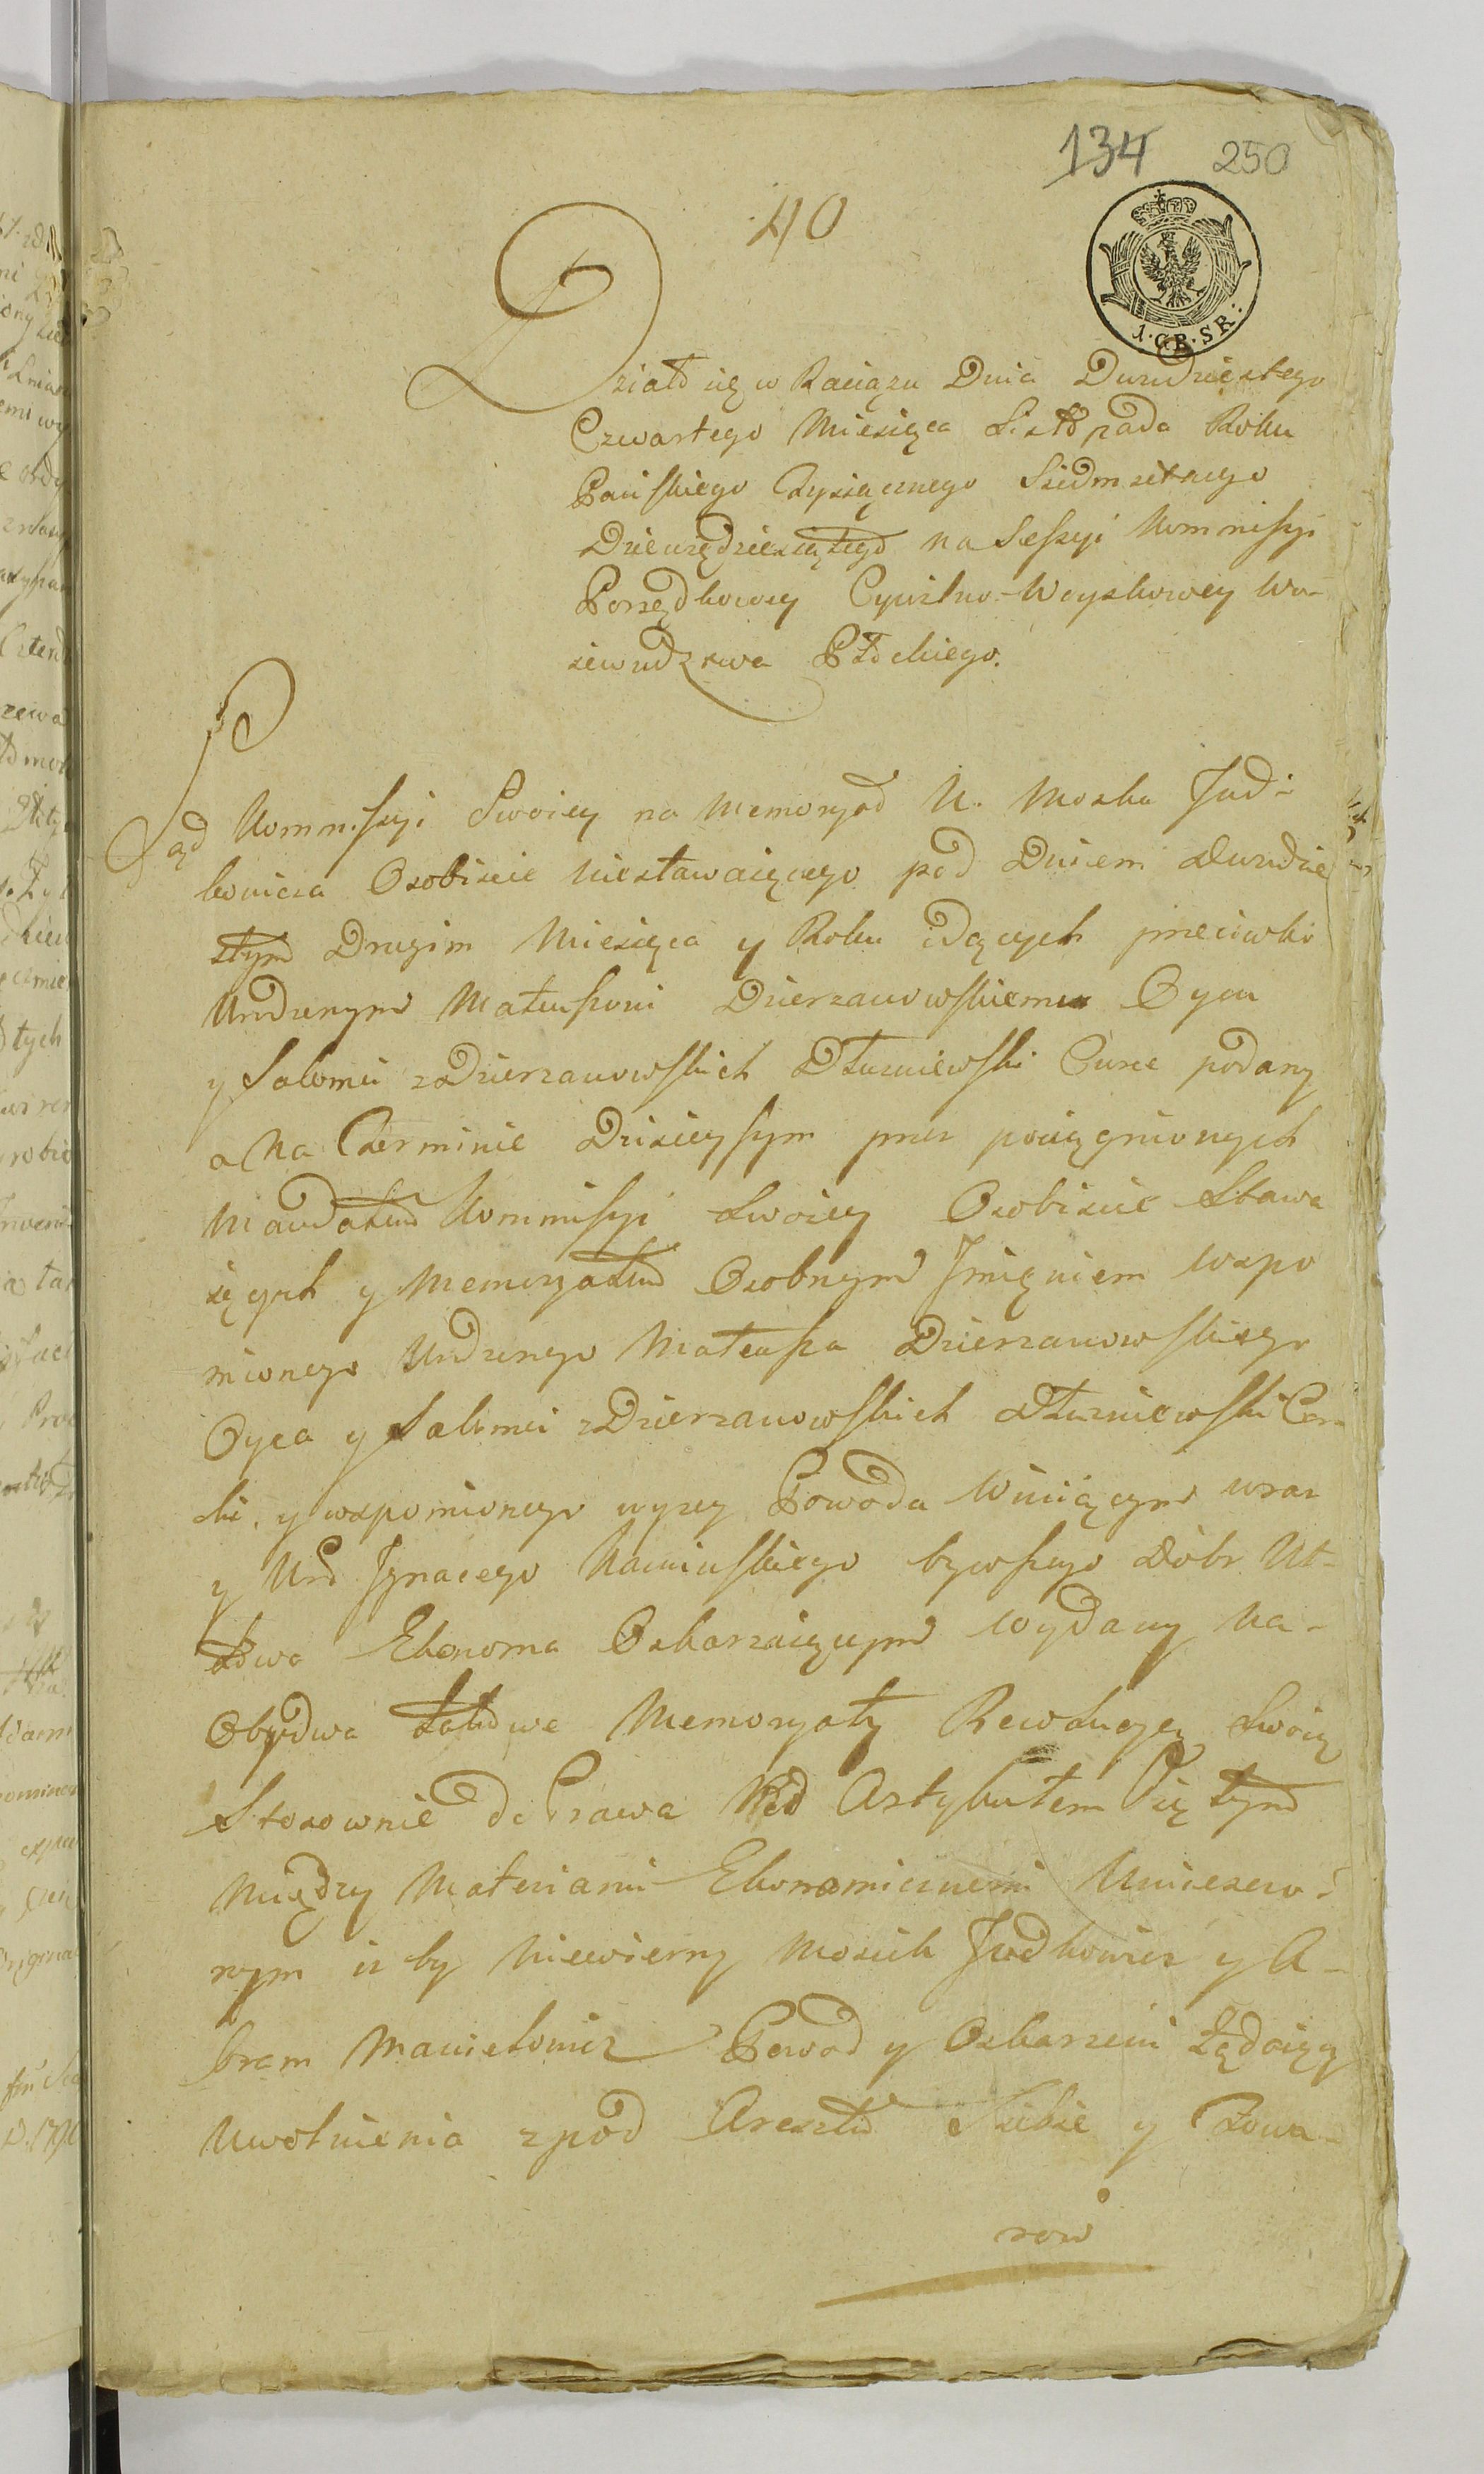 134 250
40
1·GR·SR:
Działo się w Raciążu Dnia Dwudziestego
Czwartego Miesiąca Listopada Roku
Pańskiego Tysiącznego Siedmsetnego
Dziewiędziesiątego na Sessyi Kommissyi
Porządkowey Cywilno-Woyskowey Wo-
iewudztwa Płockiego.
Sąd Kommissyi Swoiey na Memoryał N. Moska Jud-
kowicza Osobiscie niestawaiącego pod Dniem Dwudzie
stym Drugim Miesiąca y Roku idących przeciwko
Urodzonym Mateuszowi Dzierzanowskiemu Oycu
y Salomei z Dzierzanowskich Dłuzniewski Curce podany
a Na Terminie Dzisieyszym przez pociągnionych
Mandatem Kommissyi Swoiey Osobiscie Stawa
iących y Memoryałem Osobnym Jmięniem wspo
mionego Urodzonego Mateusza Dzierzanowskiego
Oyca y Salomei z Dzierzanowskich Dłuzniewski Cur-
ki, y wspomionego wyzey Powoda Winiącym wraz
y Urod Jgnacego Kaminskiego bywszego Dobr Ut-
Ekonoma Oskarzaiącym wydany na-
Obydwa takowe Memoryały Rezolucyą Swoią
Stosownie do Prawa Pod Artykułem tym
między Materiami Ekonomicznemi Umieszczo-
nym iz by Niewierny Mosiek Judkowicz y A-
bram Powod y Oskarzeni Ządaiący
Uwolnienia z pod Aresztu Siebie y Towa-
row